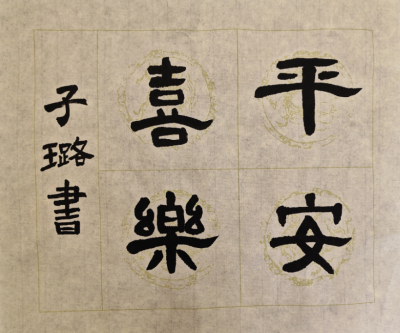 平安
喜樂
子璐書